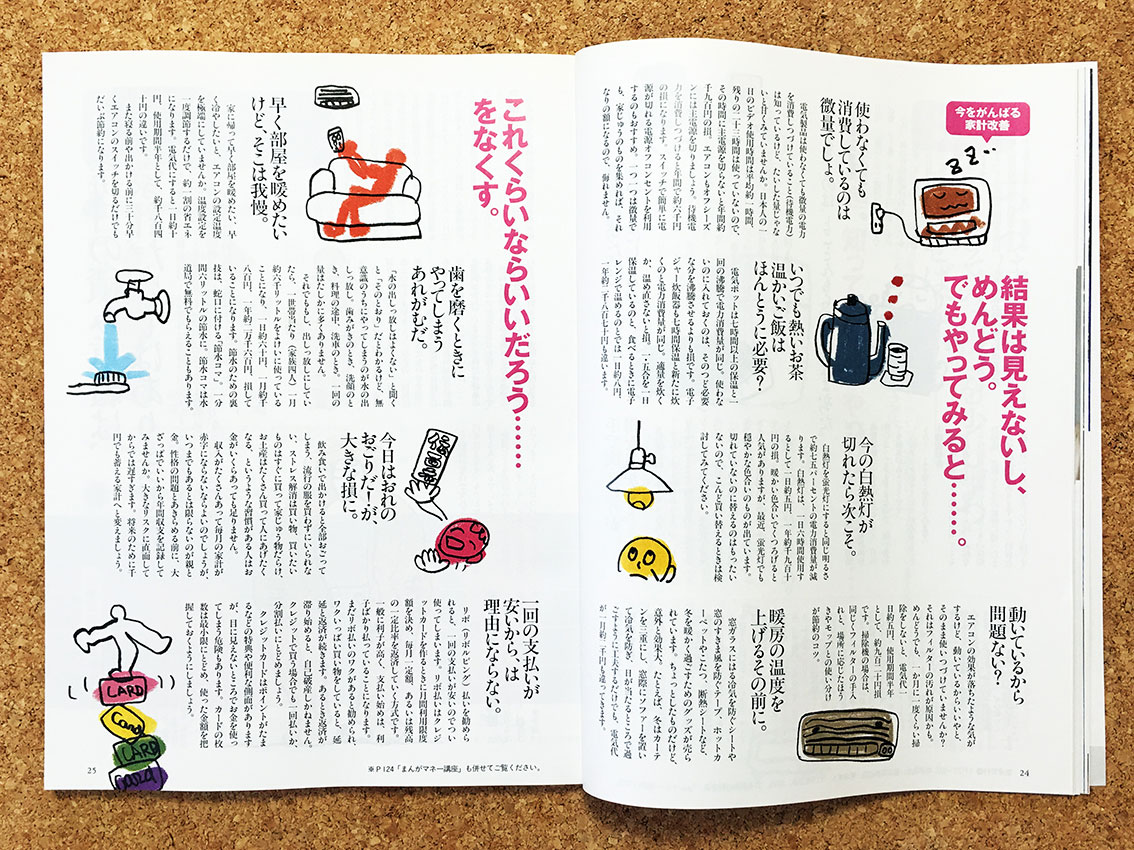 今をがんばる
家計改善
結果は見えないし、
めんどう。
でもやってみると……。
使わなくても
消費しているのは
微量でしょ。
電気製品は使わなくても微量の電力
を消費しつづけていること（待機電力）
は知っているけど、たいした量じゃな
いと甘くみていませんか。日本人の一
日のビデオ使用時間は平均約一時間、
残りの二十三時間は使っていないので、
その時間に主電源を切らないと年間約
千九百円の損。エアコンもオフシーズ
ンには主電源を切りましょう。待機電
力を消費しつづけると年間で約六千円
の損になります。スイッチで簡単に電
源が切れる電源オフコンセントを利用
するのもおすすめ。一つ一つは微量で
も、家じゅうのものを集めれば、それ
なりの額になるので、侮れません。
いつでも熱いお茶
温かいご飯は
ほんとうに必要？
電気ポットは七時間以上の保温と一
回の沸騰で電力消費量が同じ。使わな
いのに入れておくのは、そのつど必要
な分を沸騰させるよりも損です。電子
ジャー炊飯器も七時間保温と新たに炊
くのと電力消費量が同じ。適量を炊く
か、温め直さないと損。二・五合を一日
保温しているのと、食べるときに電子
レンジで温めるのとでは一日約八円、
一年約二千八百七十円も違います。
今の白熱灯が
切れたら次こそ。
白熱灯を蛍光灯にすると同じ明るさ
で約七五パーセントの電力消費量が減
ります。白熱灯は、一日六時間使用す
るとして一日約五円、一年約千九百十
円の損。暖かい色合いでくつろげると
人気がありますが、最近、蛍光灯でも
穏やかな色合いのものが出ています。
切れていないのに替えるのはもったい
ないので、こんど買い替えるときは検
討してみてください。
動いているから
問題ない？
エアコンの効果が落ちたような気が
するけど、動いているからいいやと、
そのまま使いつづけていませんか？
それはフィルターの汚れが原因かも。
めんどうでも、一か月に一度くらい掃
除をしないと、電気代一
日約五円、使用期間半年
として、約九百二十円損
です。掃除機の場合は、
同じくフィルターの手入
れと、場所に応じたほう
きやモップとの使い分け
が節約のコツ。
暖房の温度を
上げるその前に。
窓ガラスには冷気を防ぐシートや
窓のすきま風を防ぐテープ、ホットカ
ーペットやこたつ、断熱シートなど、
冬を暖かく過ごすためのグッズが売ら
れています。ちょっとしたものだけど、
意外と効果大。たとえば、冬はカーテ
ンを二重にし、窓際にソファーを置い
て冷気を防ぎ、日が当たるところで過
ごすように工夫するだけでも、電気代
が一日約二千円も違ってきます。
24
これくらいならいいだろう……
をなくす。
早く部屋を暖めたい
けど、そこは我慢。
家に帰って早く部屋を暖めたい、早
く冷やしたいと、エアコンの設定温度
を極端にしていませんか。温度設定を
一度調節するだけで、約一割の省エネ
になります。電気代にすると一日約十
円、使用期間半年として、約千八百四
十円の違いです。
また寝る前や出かける前に三十分早
くエアコンのスイッチを切るだけでも
だいぶ節約になります。
歯を磨くときに
やってしまう
あれがむだ。
「水の出しっ放しはよくない」と聞く
と「そのとおり」だとわかるけど、無
意識のうちにやってしまうのが水の出
しっ放し。歯みがきのとき、洗顔のと
き、料理の途中、洗車のとき、一回の
量はたしかに多くありません。
それでももし、出しっ放しにしてい
たら、一世帯当たり（家族四人）一月
約六千リットルをよけいに使っている
ことになり、一日約六十円、一月約千
八百円、一年約二万千六百円、損して
いることになります。節水のための裏
技は、蛇口に付ける「節水コマ」。一分
間六リットルの節水に。節水コマは水
道局で無料でもらえることもあります。
今日はおれの
おごりだーが、
大きな損に。
飲み食いで出かけると全部おごって
しまう、流行の服を買わずにいられな
い、ストレス解消は買い物、買いたい
ものはすぐに買って家じゅう物だらけ、
お土産はたくさん買って人にあげたく
なる、というような習慣がある人はお
金がいくらあっても足りません。
収入がたくさんあって毎月の家計が
赤字にならないならよいのでしょうが、
いつまでもあるとは限らないのが親と
金。性格の問題とあきらめる前に、大
ざっぱでいいから年間収支を記録して
みませんか。大きなリスクに直面して
からでは遅すぎます。将来のために千
円でも蓄える家計へと変えましょう。
一回の支払いが
安いから、は
理由にならない。
リボ（リボルビング）払いを勧めら
れると、一回の支払いが安いのでつい
使ってしまいます。リボ払いはクレジ
ットカードを作るときに月間利用限度
額を決め、毎月一定額、あるいは残高
の一定比率を返済していく方式です。
一般に利子が高く、支払い始めは、利
子ばかり払っていることになります。
まだリボ払いのワクがあると勧められ、
ワクいっぱい買い物をしていると、延
延と返済が続きます。あるとき返済が
滞り始めると、自己破産しかねません。
クレジットで買う場合でも一回払いか、
分割払いにとどめましょう。
クレジットカードはポイントがたま
るなどの特典や便利な側面があります
が、目に見えないところでお金を使っ
てしまう危険もあります。カードの枚
数は最小限にとどめ、使った金額を把
握しておくようにしましょう。
CARD
Card
CARD
Card
※P124「まんがマネー講座」も併せてご覧ください。
25